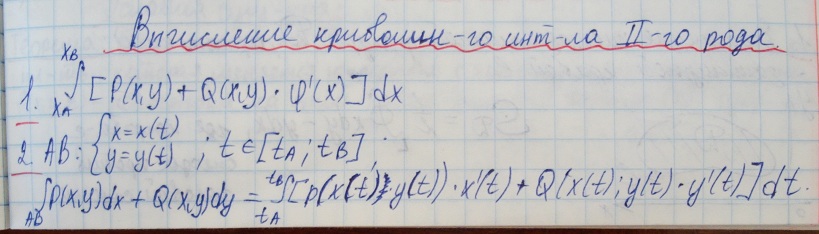 Вычисление криволин-го инт-ла II-го рода.
1. ∫_{x_A}^{x_B} [P(x,y) + Q(x,y) · φ'(x)] dx
2. AB: {x = x(t) y = y(t) ; t ∈ [t_A; t_B] ;
∫_{AB} P(x,y)dx + Q(x,y)dy = ∫_{t_A}^{t_B} [p(x(t); y(t)) · x'(t) + Q(x(t); y(t) · y'(t)] dt.